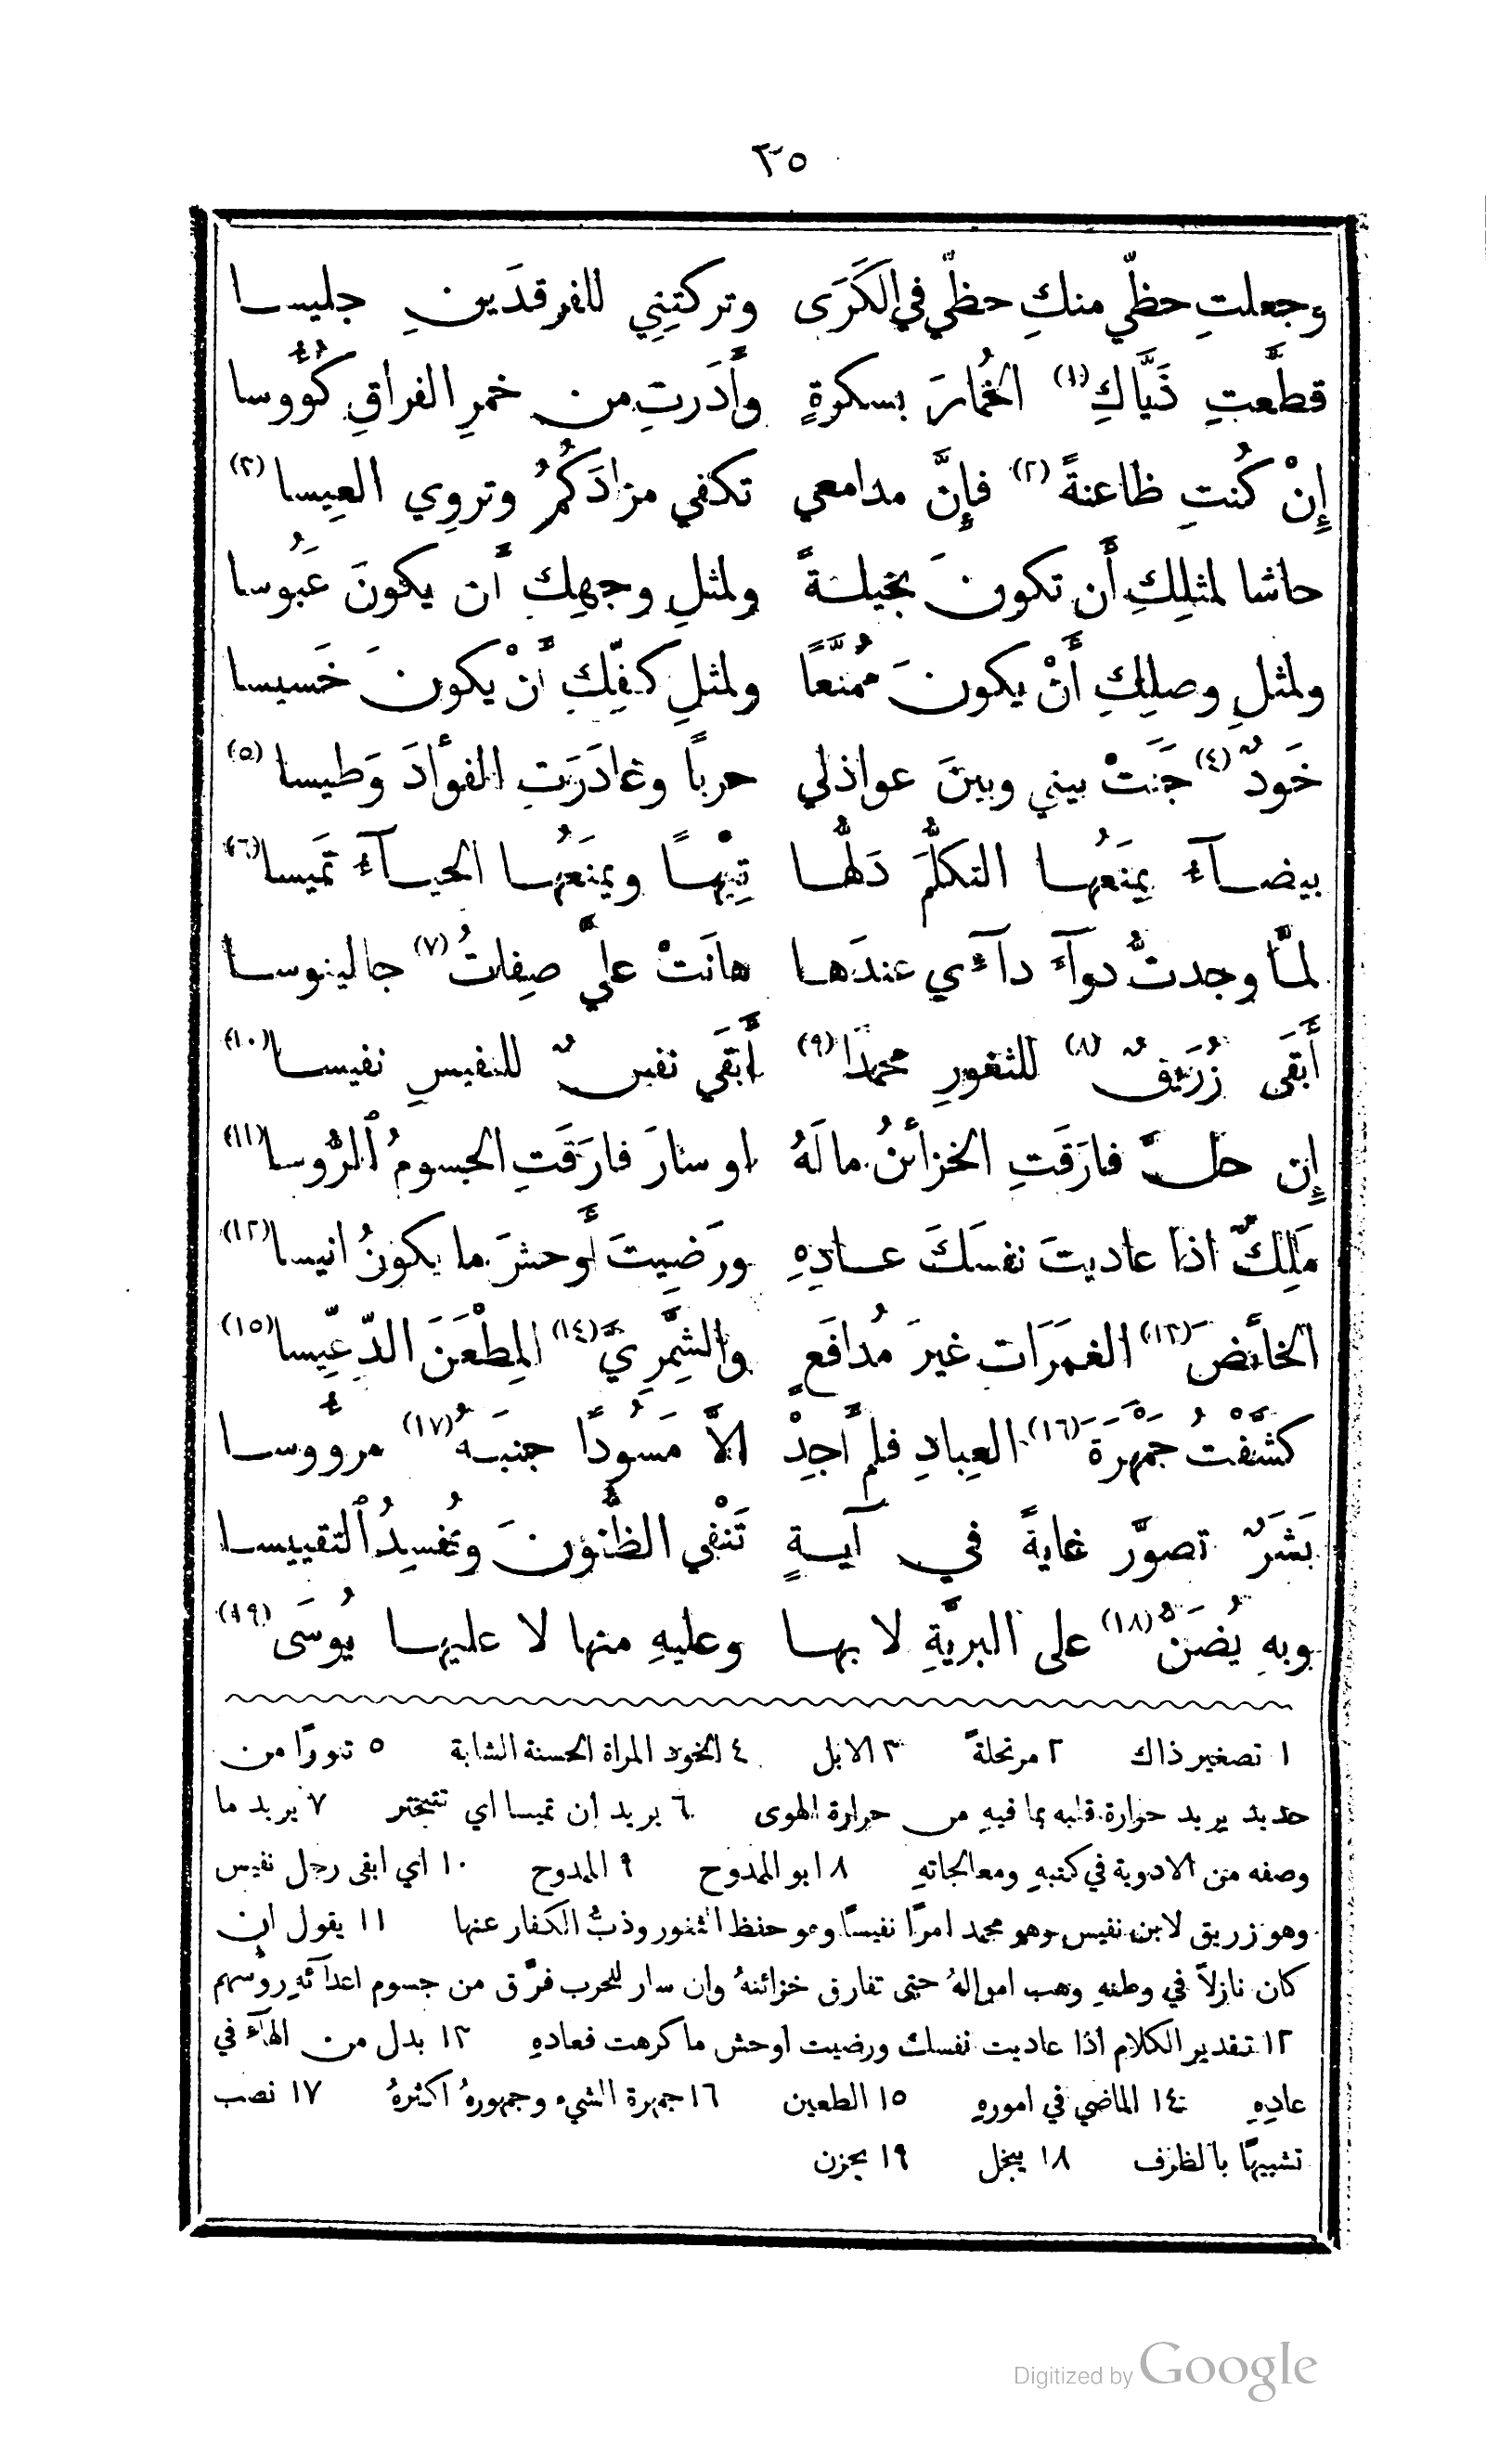 ٣٥
وجعلتِ حظّي منكِ حظّي في الكَرَى وتركتِنِي للفرقدَينِ جليسا
قطَّعتِ ذَيَّاكِ(١) الخُمارَ بسكرةٍ وأَدَرتِ من خمرِ الفراقِ كُؤُوسا
إِنْ كُنتِ ظاعنةً(٢) فإِنَّ مدامعي تكفي مزادَكُمُ وتروِي العِيسا(٣)
حاشا لمثلِكِ أَن تكونَ بخيلةً ولمثلِ وجهِكِ أَن يكونَ عَبُوسا
ولمثلِ وصلِكِ أَنْ يكونَ مُمنَّعًا ولمثلِ كفِّكِ أَنْ يكونَ خَسيسا
خَودٌ(٤) جَنَتْ بيني وبينَ عواذلي حربًا وغادَرَتِ الفؤَادَ وَطيسا(٥)
بيضآء يمنَعُها التكلُّمَ دَلُّها تِيْهًا ويمنَعُها الحيآء تَميسا(٦)
لمَّا وجدتُّ دوآءَ دآءي عندَها هانَتْ عليَّ صِفاتُ(٧) جالينوسا
أَبقَى زُرَيقٌ(٨) للثغورِ محمدًا(٩) أَبقَى نفيسٌ للنفيسِ نفيسا(١٠)
إِن حلَّ فارَقَتِ الخزائنُ مالَهُ او سارَ فارَقَتِ الجسومُ ٱلرُّوسا(١١)
مَلِكٌ اذا عاديتَ نفسَكَ عادِهِ ورَضِيتَ أَوحشَ ما يكونُ انيسا(١٢)
الخائضَ(١٣) الغمَرَات غيرَ مُدافَعٍ والشِّمَّرِيَّ(١٤) المِطْعَنَ الدِّعِّيسا(١٥)
كشَّفْتُ جَمْهَرَةَ(١٦) العِبادِ فلم أَجِدْ الاَّ مَسُودًا جنبَهُ(١٧) مرؤُوسا
بَشَرٌ تصوَّر غايةً في آيةٍ تَنْفي الظُّنُونَ وتُفسِدُ ٱلتقييسا
وبهِ يُضَنُّ(١٨) على البريَّةِ لا بها وعليهِ منها لا عليها يُوسَى(١٩)
١ تصغير ذاك ٢ مرتحلةً ٣ الابل ٤ الخود المراة الحسنة الشابة ٥ تنورًا من
حديد يريد حرارة قلبه بما فيهِ من حرارة الهوى ٦ يريد ان تميسا اي تتبختر ٧ يريد ما
وصفه من الادوية في كتبهِ ومعالجاتهِ ٨ ابو الممدوح ٩ الممدوح ١٠ اي ابقى رجل نفيس
وهو زريق لابن نفيس وهو محمد امرًا نفيسًا وهو حفظ الثغور وذبُّ الكفار عنها ١١ يقول ان
كان نازلاً في وطنهِ وهب اموالهُ حتى تفارق خزائنهُ وان سار للحرب فرَّق من جسوم اعدآئهِ روُسهم
١٢ تقدير الكلام اذا عاديت نفسك ورضيت اوحش ما كرهت فعادهِ ١٣ بدل من الهآء في
عادِهِ ١٤ الماضي في امورهِ ١٥ الطعين ١٦ جمهرة الشيء وجمهورهُ اكثرهُ ١٧ نصب
تشبيهًا بالظرف ١٨ يبخل ١٩ يحزن
Digitized by Google